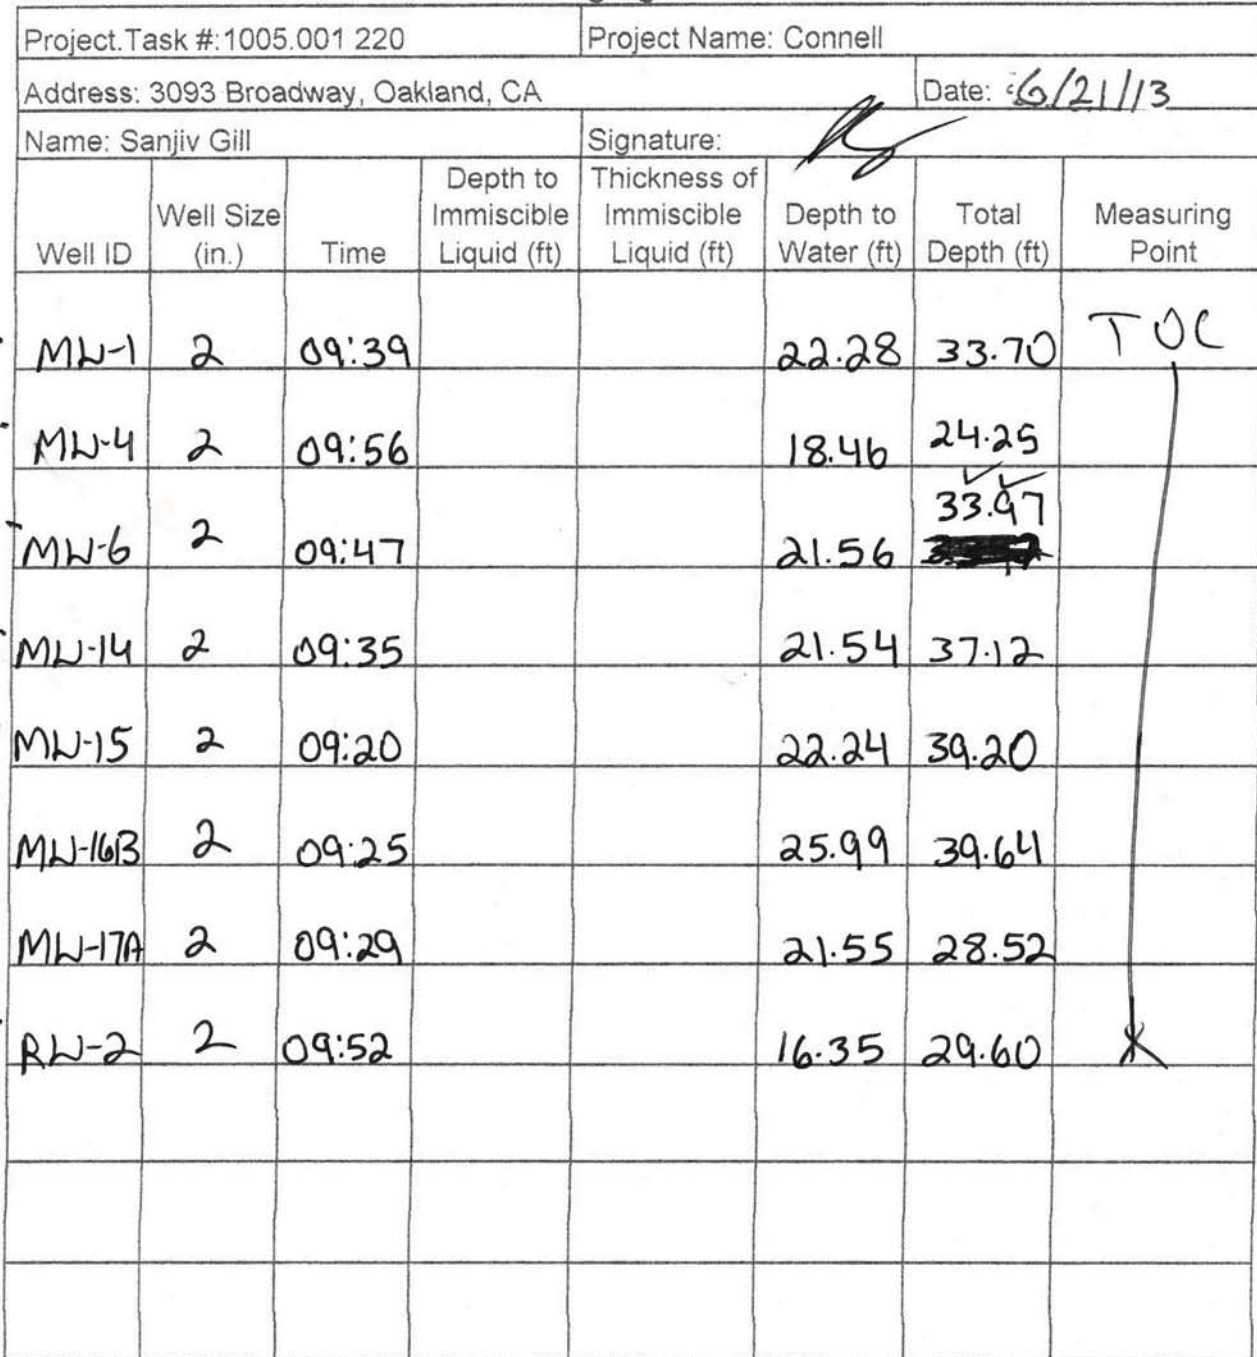 Project.Task #:1005.001 220 Project Name: Connell
Address: 3093 Broadway, Oakland, CA Date: 6/21/13
Name: Sanjiv Gill Signature:
Well ID Well Size (in.) Time Depth to Immiscible Liquid (ft) Thickness of Immiscible Liquid (ft) Depth to Water (ft) Total Depth (ft) Measuring Point
MW-1 2 09:39 22.28 33.70 TOC
MW-4 2 09:56 18.46 24.25
MW-6 2 09:47 21.56 33.97
MW-14 2 09:35 21.54 37.12
MW-15 2 09:20 22.24 39.20
MW-16B 2 09:25 25.99 39.64
MW-17A 2 09:29 21.55 28.52
RW-2 2 09:52 16.35 29.60